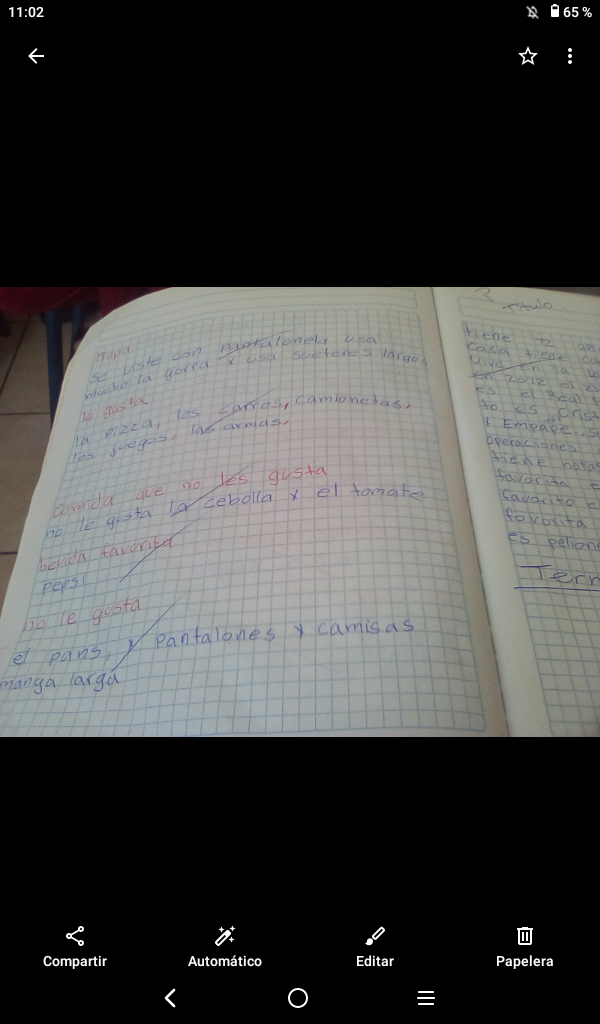 11:02
65 %
Ropa
se viste con pantaloneta usa
mucho la gorra y usa sueteres largos
le gusta
la pizza, los carros, camionetas,
los juegos, las armas.
comida que no les gusta
no le gusta la cebolla y el tomate
bevida favorita
pepsi
no le gusta
el pans, y pantalones y camisas
manga larga
Titulo
tiene 12 an
casa tiene
vive en la
en 2012 el
es el Real
to es
y Empape
operaciones
tiene notas
favorita e
favorito e
fovorita
es pelion
Term
Compartir
Automático
Editar
Papelera